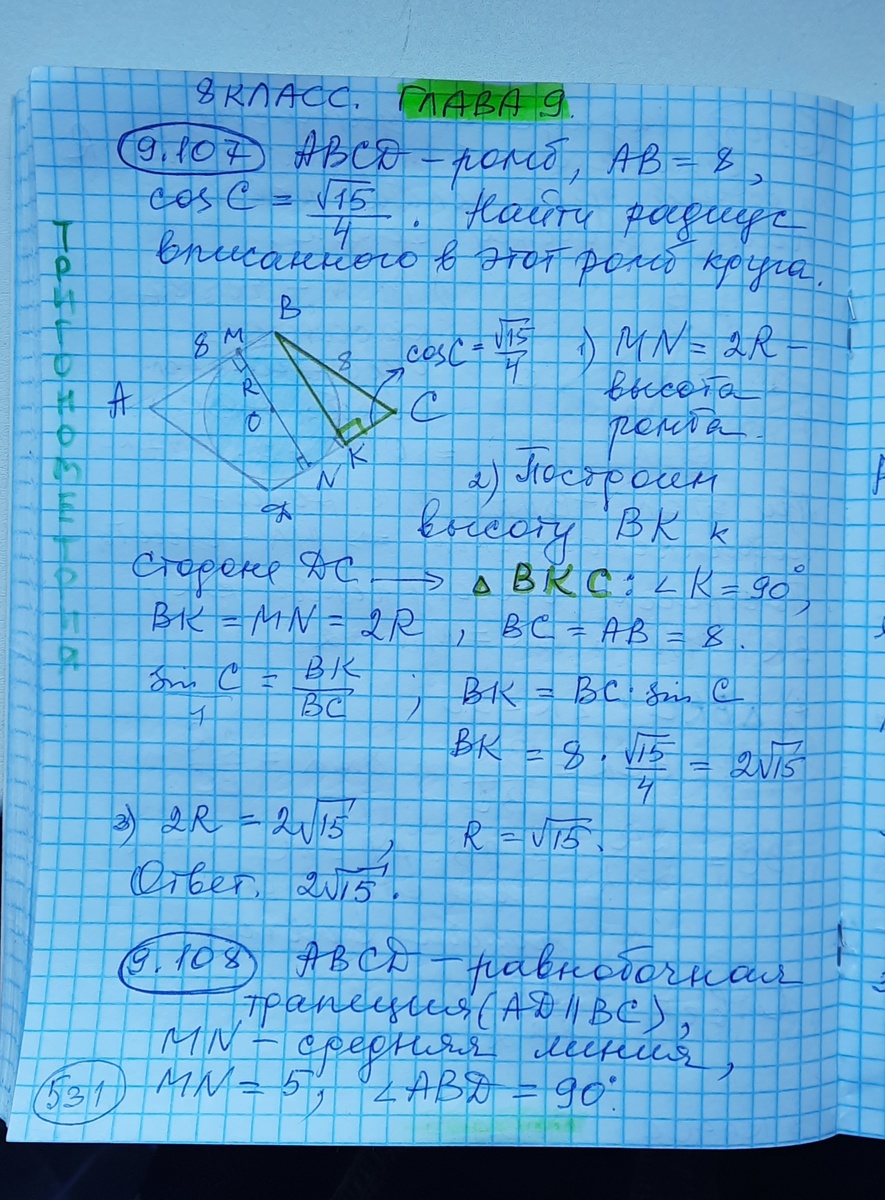 8 КЛАСС. ГЛАВА 9.
9.107 ABCD – ромб, AB = 8,
cos C = √15/4. Найти радиус
вписанного в этот ромб круга.
ТРИГОНОМЕТРИЯ
B
8 M
8
cos C = √15/4
A
R
O
C
K
N
D
1) MN = 2R –
высота
ромба.
2) Построим
высоту BK к
стороне DC → △ BKC: ∠K = 90°,
BK = MN = 2R, BC = AB = 8.
sin C/1 = BK/BC; BK = BC · sin C
BK = 8 · √15/4 = 2√15
3) 2R = 2√15, R = √15.
Ответ. 2√15.
9.108 ABCD – равнобочная
трапеция (AD ∥ BC),
MN – средняя линия,
531 MN = 5, ∠ABD = 90°.